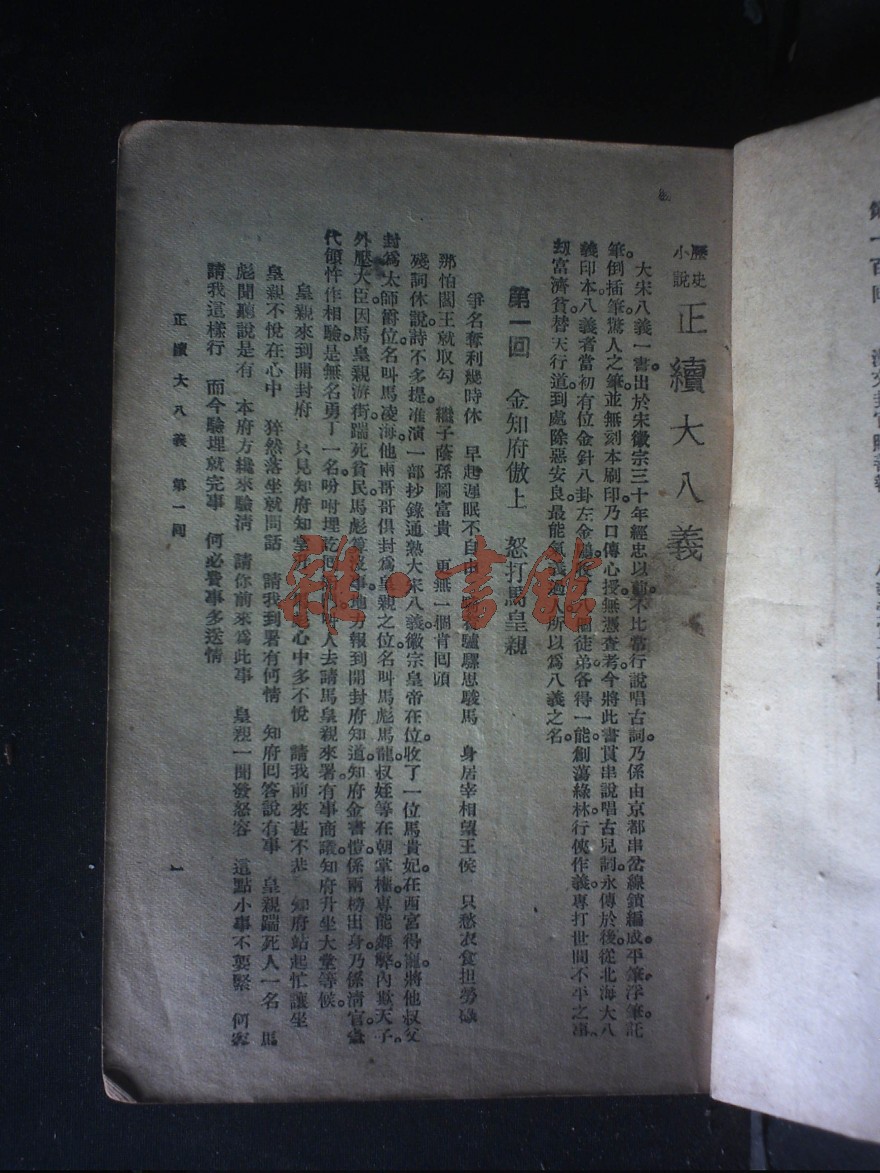 歷史小說 正續大八義
大宋八義一書。出於宋徽宗三十年經忠以前。不比常行說唱古詞。乃係由京都串岔線鎖編成。平筆浮筆託
筆。倒插筆。驚人之筆。並無刻本刷印。乃口傳心授。無憑查考。今將此書貫串說唱古兒詞。永傳於後。從北海大八
義印本。八義者。當初有位金針八卦左金
徒弟。各得一能。創蕩綠林。行俠作義。專打世間不平之事
刧富濟貧。替天行道。到處除惡安良。最能
過人。所以爲八義之名。
第一回 金知府傲上 怒打馬皇親
爭名奪利幾時休 早起遲眠不自由
驢騾思駿馬 身居宰相望王侯 只愁衣食担勞碌
那怕閻王就取勾 繼子蔭孫圖富貴 更無一個肯囘頭
殘詞休說。詩不多提。准演一部抄錄通熟大宋八義。徽宗皇帝在位。收了一位馬貴妃。在西宮得寵。將他叔父
封爲太師爵位。名叫馬凌海。他兩哥哥俱封爲皇親之位。名叫馬彪馬龍。叔姪等在朝掌權。專能舞弊。內欺天子。
外壓大臣。因馬皇親游街踹死貧民。馬彪
地方報到開封府知道。知府金書愷。係兩榜出身。乃係淸官
代領忤作相驗。是無名勇丁一名。吩咐埋
人去請馬皇親來署。有事商議。知府升坐大堂等候。
皇親來到開封府 只見知府
心中多不悅 請我前來甚不恭 知府站起忙讓坐
皇親不悅在心中 猝然落坐就問話 請我到署有何情 知府囘答說有事 皇親踹死人一名 馬
彪聞聽說是有 本府方纔來驗淸 請你前來爲此事 皇親一聞發怒容 這點小事不要緊 何
請我這樣行 而今驗埋就完事 何必費事多送情
正續大八義 第一囘
一
雜·書館